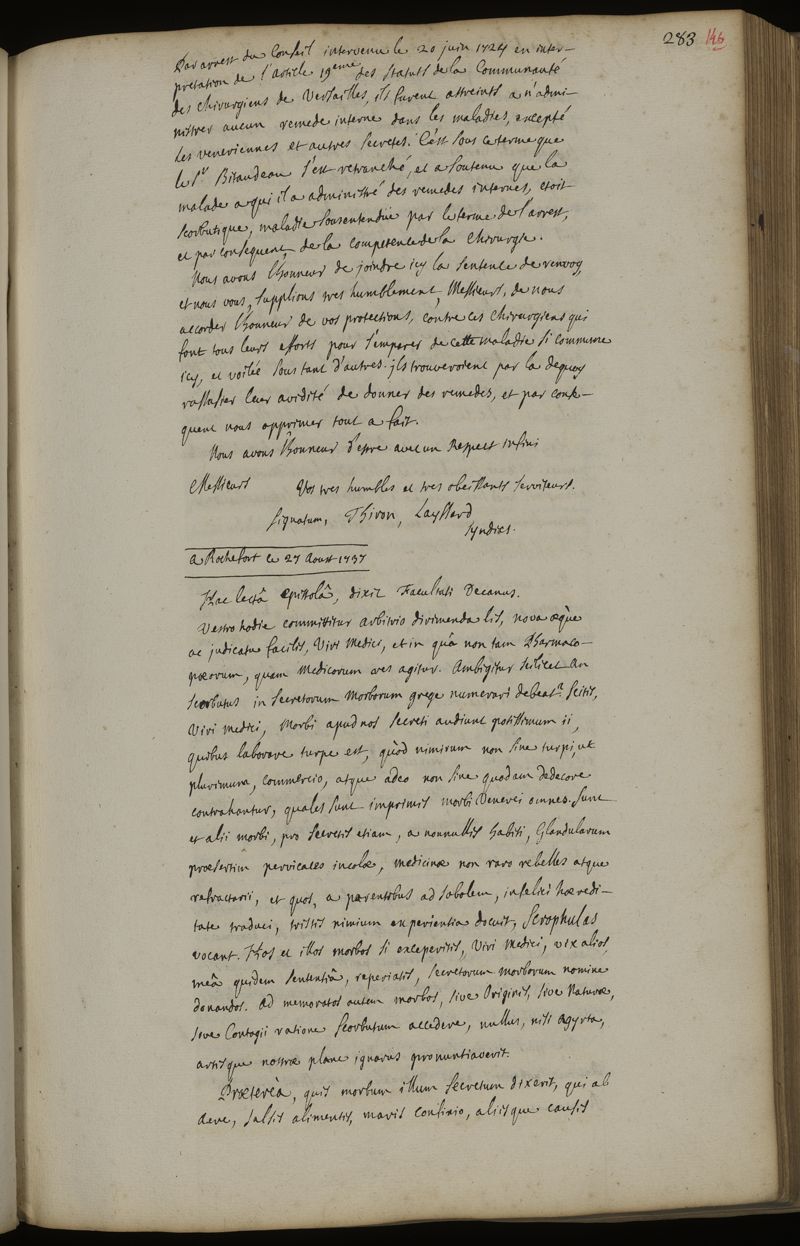 283 146
Par arrest du Conseil intervenu le 20 juin 1724 en inter-
pretation de l'article 19eme des statuts de la Communauté
des chirurgiens de Versailles, ils furent astreints a n'admi-
nistrer aucun remede interne dans les maladies, excepté
les veneriennes et autres secretes. C'est sous ce terme que
le Sr Bitaudeau s'est retranché, et a soutenu que la
malade a qui il a administré des remedes internes, etoit
scorbutique, maladie sousentendüe par le terme de l'arrest,
et par consequent de la competence de la chirurgie.
Nous avons l'honneur de joindre icy la sentence de renvoy,
et nous vous supplions tres humblement, Messieurs, de nous
accorder l'honneur de vos protections, contre ces chirurgiens qui
font tous leurs efforts pour s'emparer de cette maladie si commune
icy, et voilée sous tant d'autres. ils trouveroient par la dequoy
rassasier leur avidité de donner des remedes, et par conse-
quent nous opprimer tout a fait.
Nous avons l'honneur d'estre avec un Respect infini
Messieurs Vos tres humbles et tres obeissants serviteurs.
signatum, Thiron, Layssard
syndics.
a Rochefort le 27 Aoust 1737
Hac lectâ epistolâ, dixit Facultati Decanus.
Vestro hodie committitur arbitrio dirimenda lis, nova æque
ac judicatu facilis, Viri Medici, et in quâ non tam Pharmaco-
pœorum, quam Medicorum res agitur. Ambigitur scilicet an
scorbutus in secretorum morborum grege numerari debeat? Scitis,
Viri medici, Morbi apud nos secreti audiunt potissimum ii,
quibus laborare turpe est, quòd nimirum non sine turpi, ut
plurimum, commercio, atque adeo non sine quodam dedecore
contrahantur, quales sunt imprimis morbi Venerei omnes. Sunt
et alii morbi, pro secretis etiam, a nonnullis habiti, Glandularum
præsertim pervicaces incolæ, medicinæ non raro rebelles atque
refractarii, et quos, a parentibus ad sobolem, infelici hæredi-
tate traduci, tristis nimium experientia docuit, Scrophulas
vocant. Hos et illos morbos si exceperitis, Viri Medici, vix alios,
meâ quidem sententiâ, reperiatis, secretorum morborum nomine
donandos. Ad memoratos autem morbos, sive Originis, sive Naturæ,
sive Contagii ratione scorbutum accedere, nullus, nisi agyrta,
artisque nostræ plane ignarus pronuntiaverit.
Prætereà, quis morbum illum secretum dixerit, qui ab
aere, salsis alimentis, maris confinio, aliisque causis